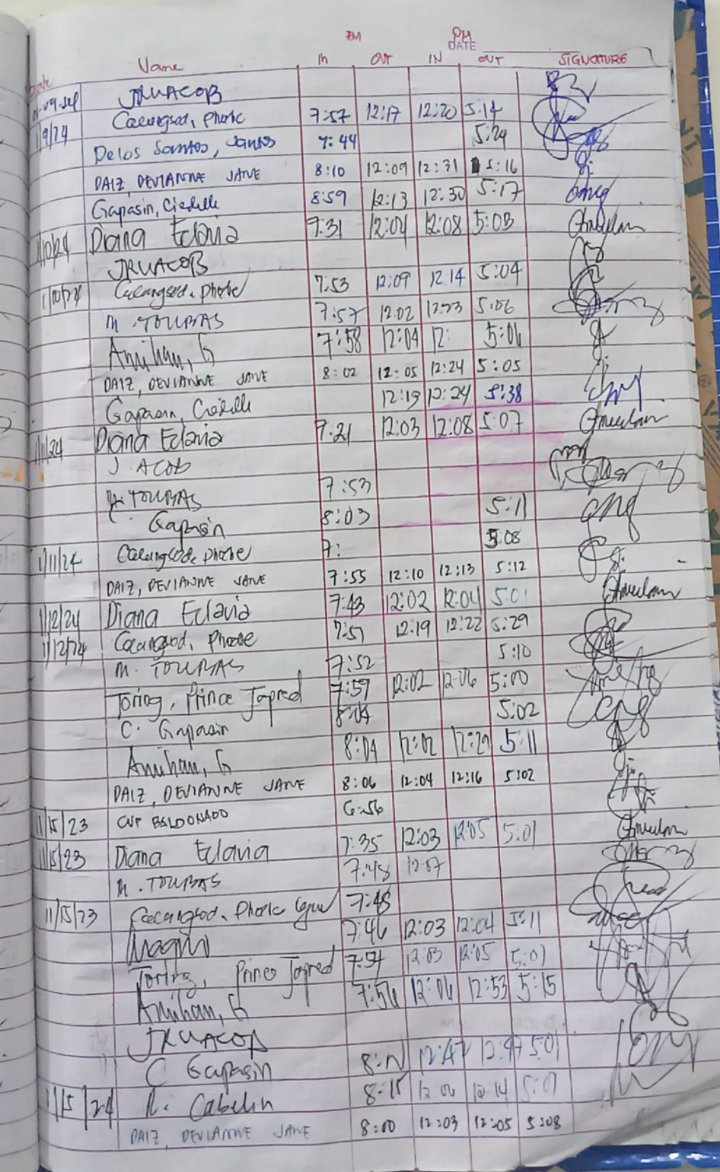 AM PM
Date Name In OUT IN DATE OUT SIGNATURE
JRUACOB
1/9/24 Cacungsod, Phoebe 7:57 12:17 12:20 5:14
Delos Santos, James 7:44 5:24
DAIZ, DEVIANNE JANE 8:10 12:09 12:31 5:16
Gapasin, Cierelle 8:59 12:13 12:30 5:17
1/10/24 Diana Eclavia 7:31 12:04 12:08 5:03
JRUACOB
1/10/24 Cacungsod, Phoebe 7:53 12:09 12:14 5:04
M. TOLIBAS 7:57 12:02 12:33 5:06
Anuhan, G 7:58 12:04 12: 5:06
DAIZ, DEVIANNE JANE 8:02 12:05 12:24 5:05
Gapasin, 12:19 12:24 5:38
1/11/24 Diana Eclavia 7:21 12:03 12:08 5:07
J. ACOB
TOLIBAS 7:53
C. Gapasin 8:03 5:11
1/11/24 Cacungsod, Phoebe 7: 5:08
DAIZ, DEVIANNE JANE 7:55 12:10 12:13 5:12
1/12/24 Diana Eclavia 7:43 12:02 12:04 5:01
1/12/24 Cacungsod, Phoebe 7:51 12:19 12:22 5:29
M. TOLIBAS 7:52 5:10
Toring, Prince Japred 7:59 12:02 12:06 5:00
C. Gapasin 8:04 5:02
Anuhan, G 8:04 12:02 12:29 5:11
DAIZ, DEVIANNE JANE 8:06 12:04 12:16 5:02
1/15/23 CVP BALDONADO 6:56
1/15/23 Diana Eclavia 7:35 12:03 12:05 5:01
M. TOLIBAS 7:48 12:07
1/15/23 Cacungsod, Phoebe 7:48
7:46 12:03 12:04 5:11
Toring, Prince Japred 7:54 12:03 12:05 5:01
Anuhan, G 7:56 12:06 12:53 5:15
JRUACOB
C Gapasin 12:47 12:47 5:01
1/15/24 R. Cabelin 8:15 12:06 12:14 5:07
DAIZ, DEVIANNE JANE 8:00 12:03 12:05 5:08